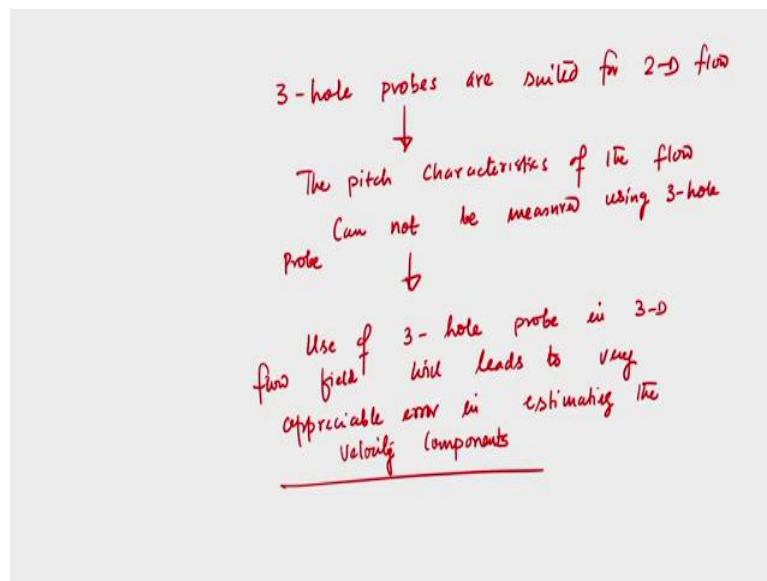 3-hole probes are suited for 2-D flow
The pitch characteristics of the flow
Can not be measured using 3-hole
probe
Use of 3-hole probe in 3-D
flow field will leads to very
appreciable error in estimating the
velocity components